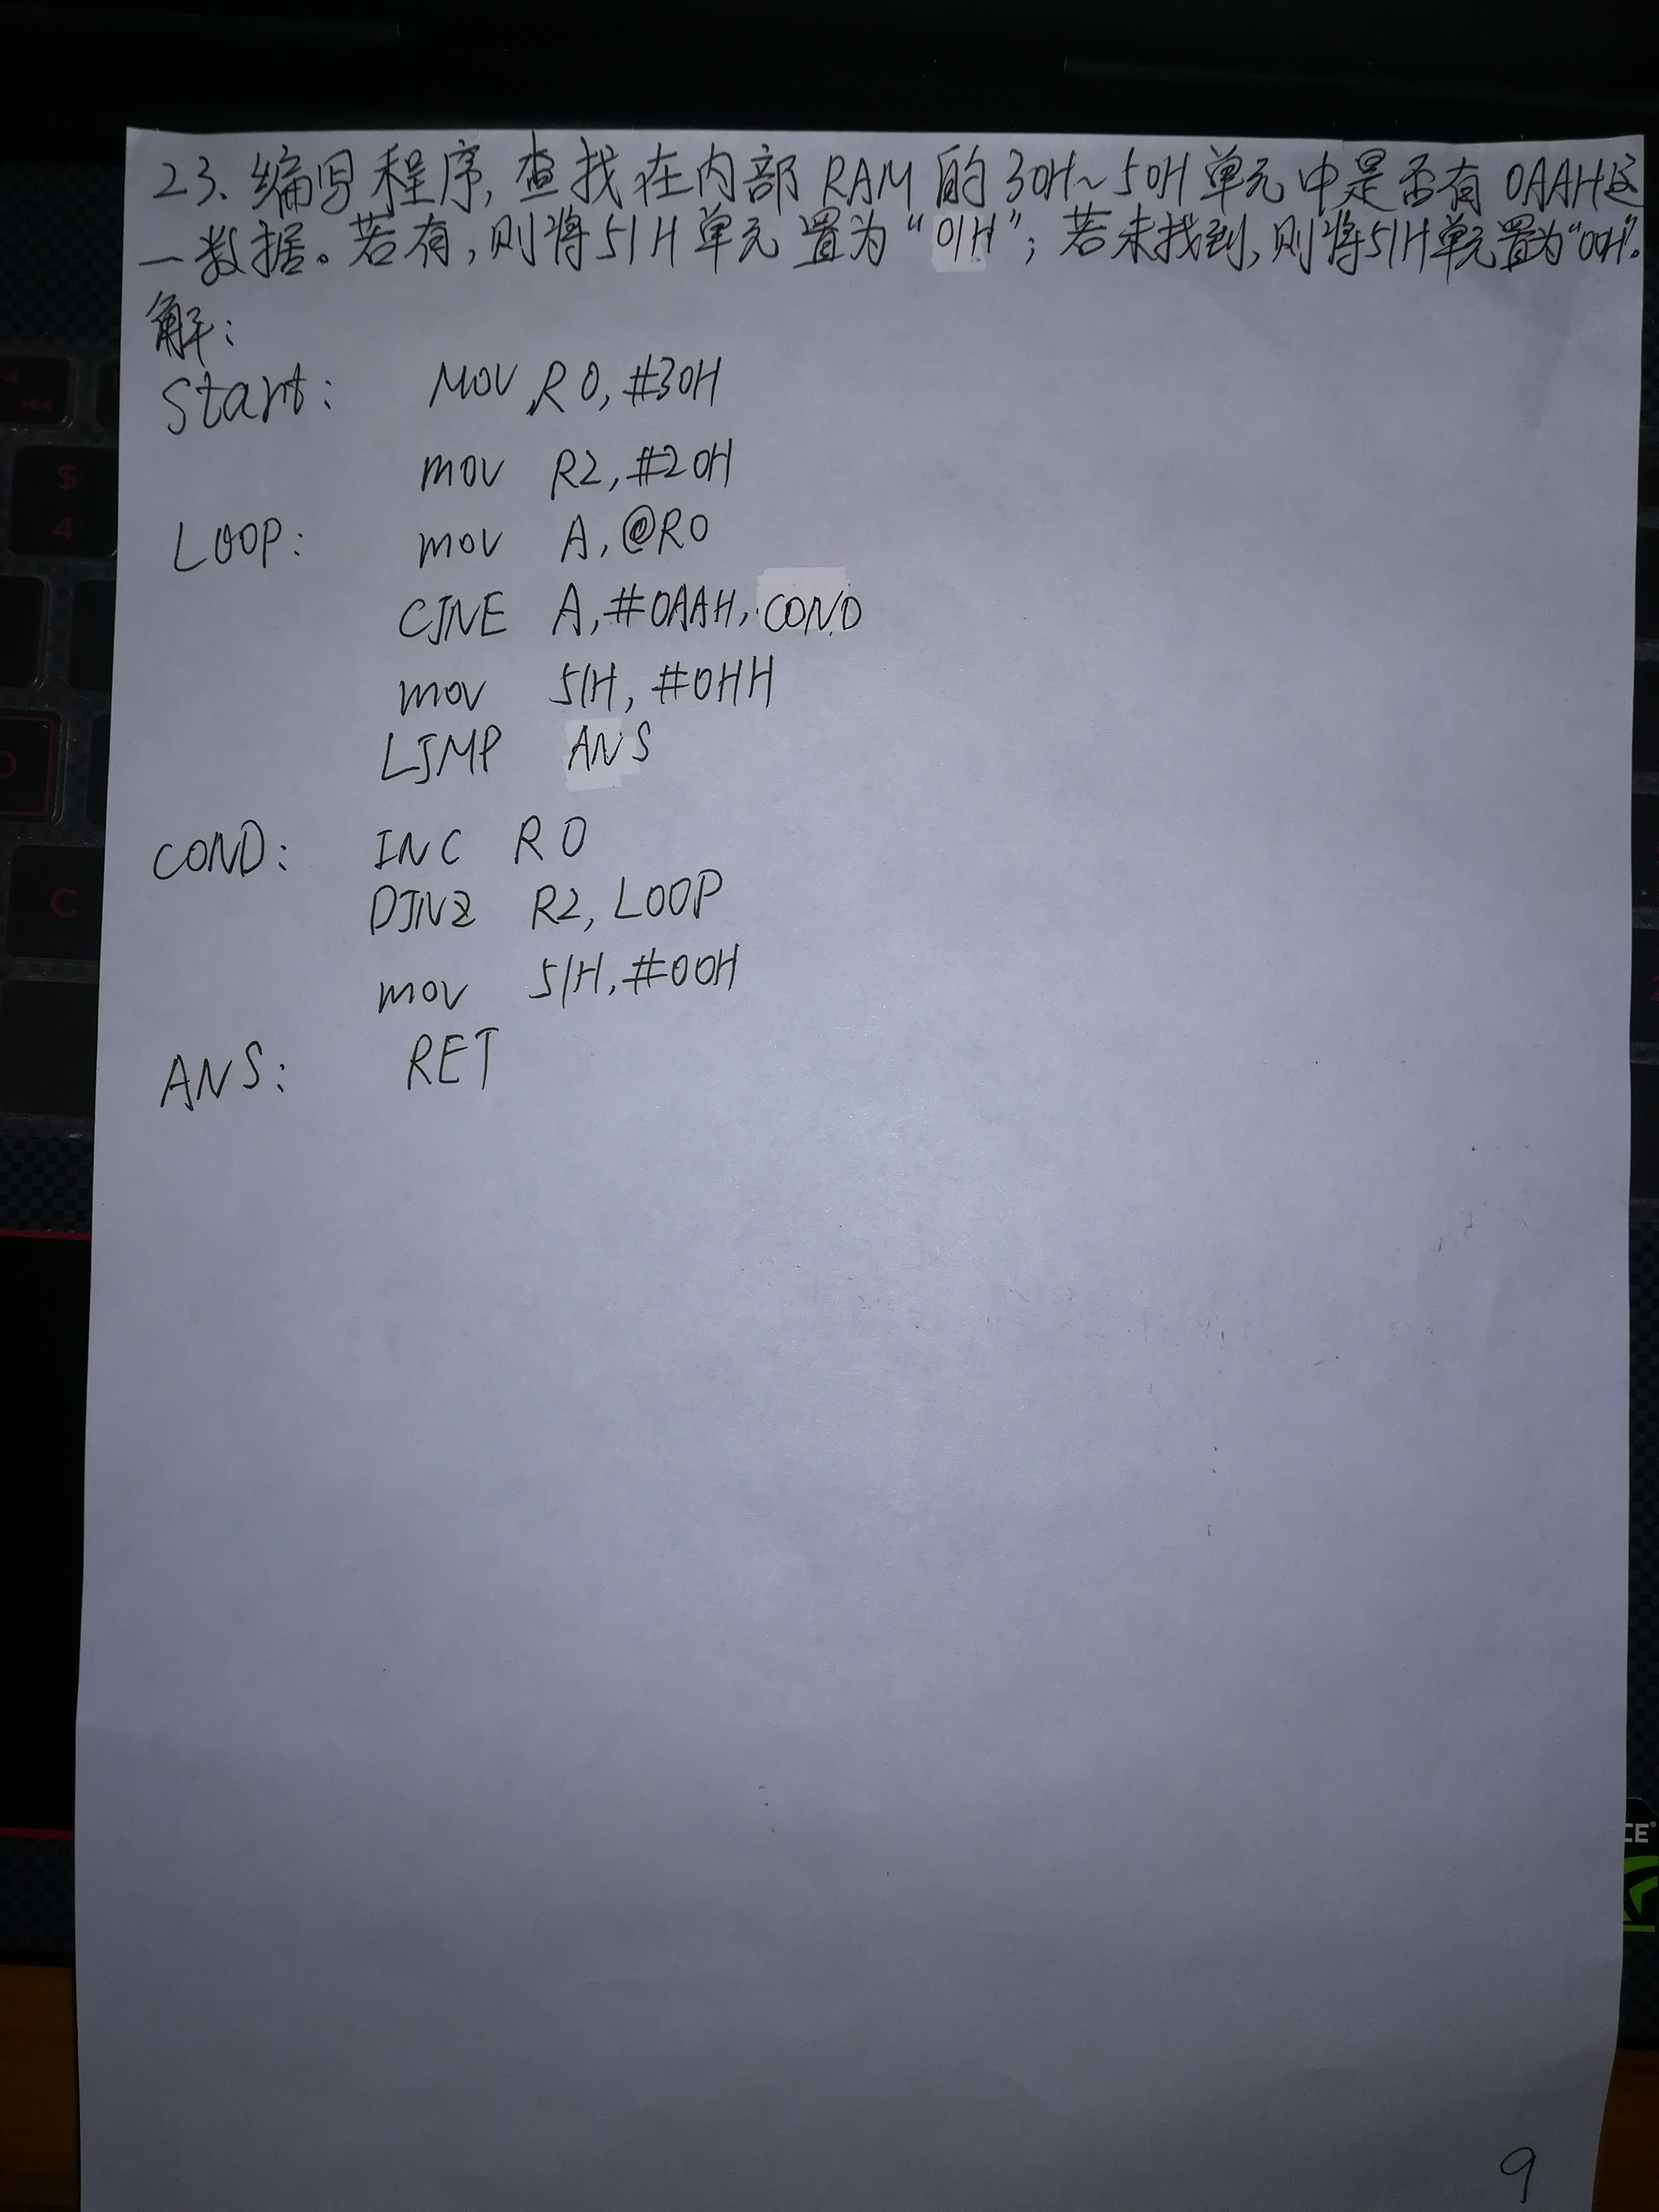 23、编写程序,查找在内部RAM的30H~50H单元中是否有0AAH这
一数据。若有,则将51H单元置为“01H”;若未找到,则将51H单元置为“00H”。
解:
Start: MOV R0, #30H
mov R2, #20H
LOOP: mov A, @R0
CJNE A, #0AAH, COND
mov 51H, #0HH
LJMP ANS
COND: INC R0
DJNZ R2, LOOP
mov 51H, #00H
ANS: RET
9
$
4
C
CE